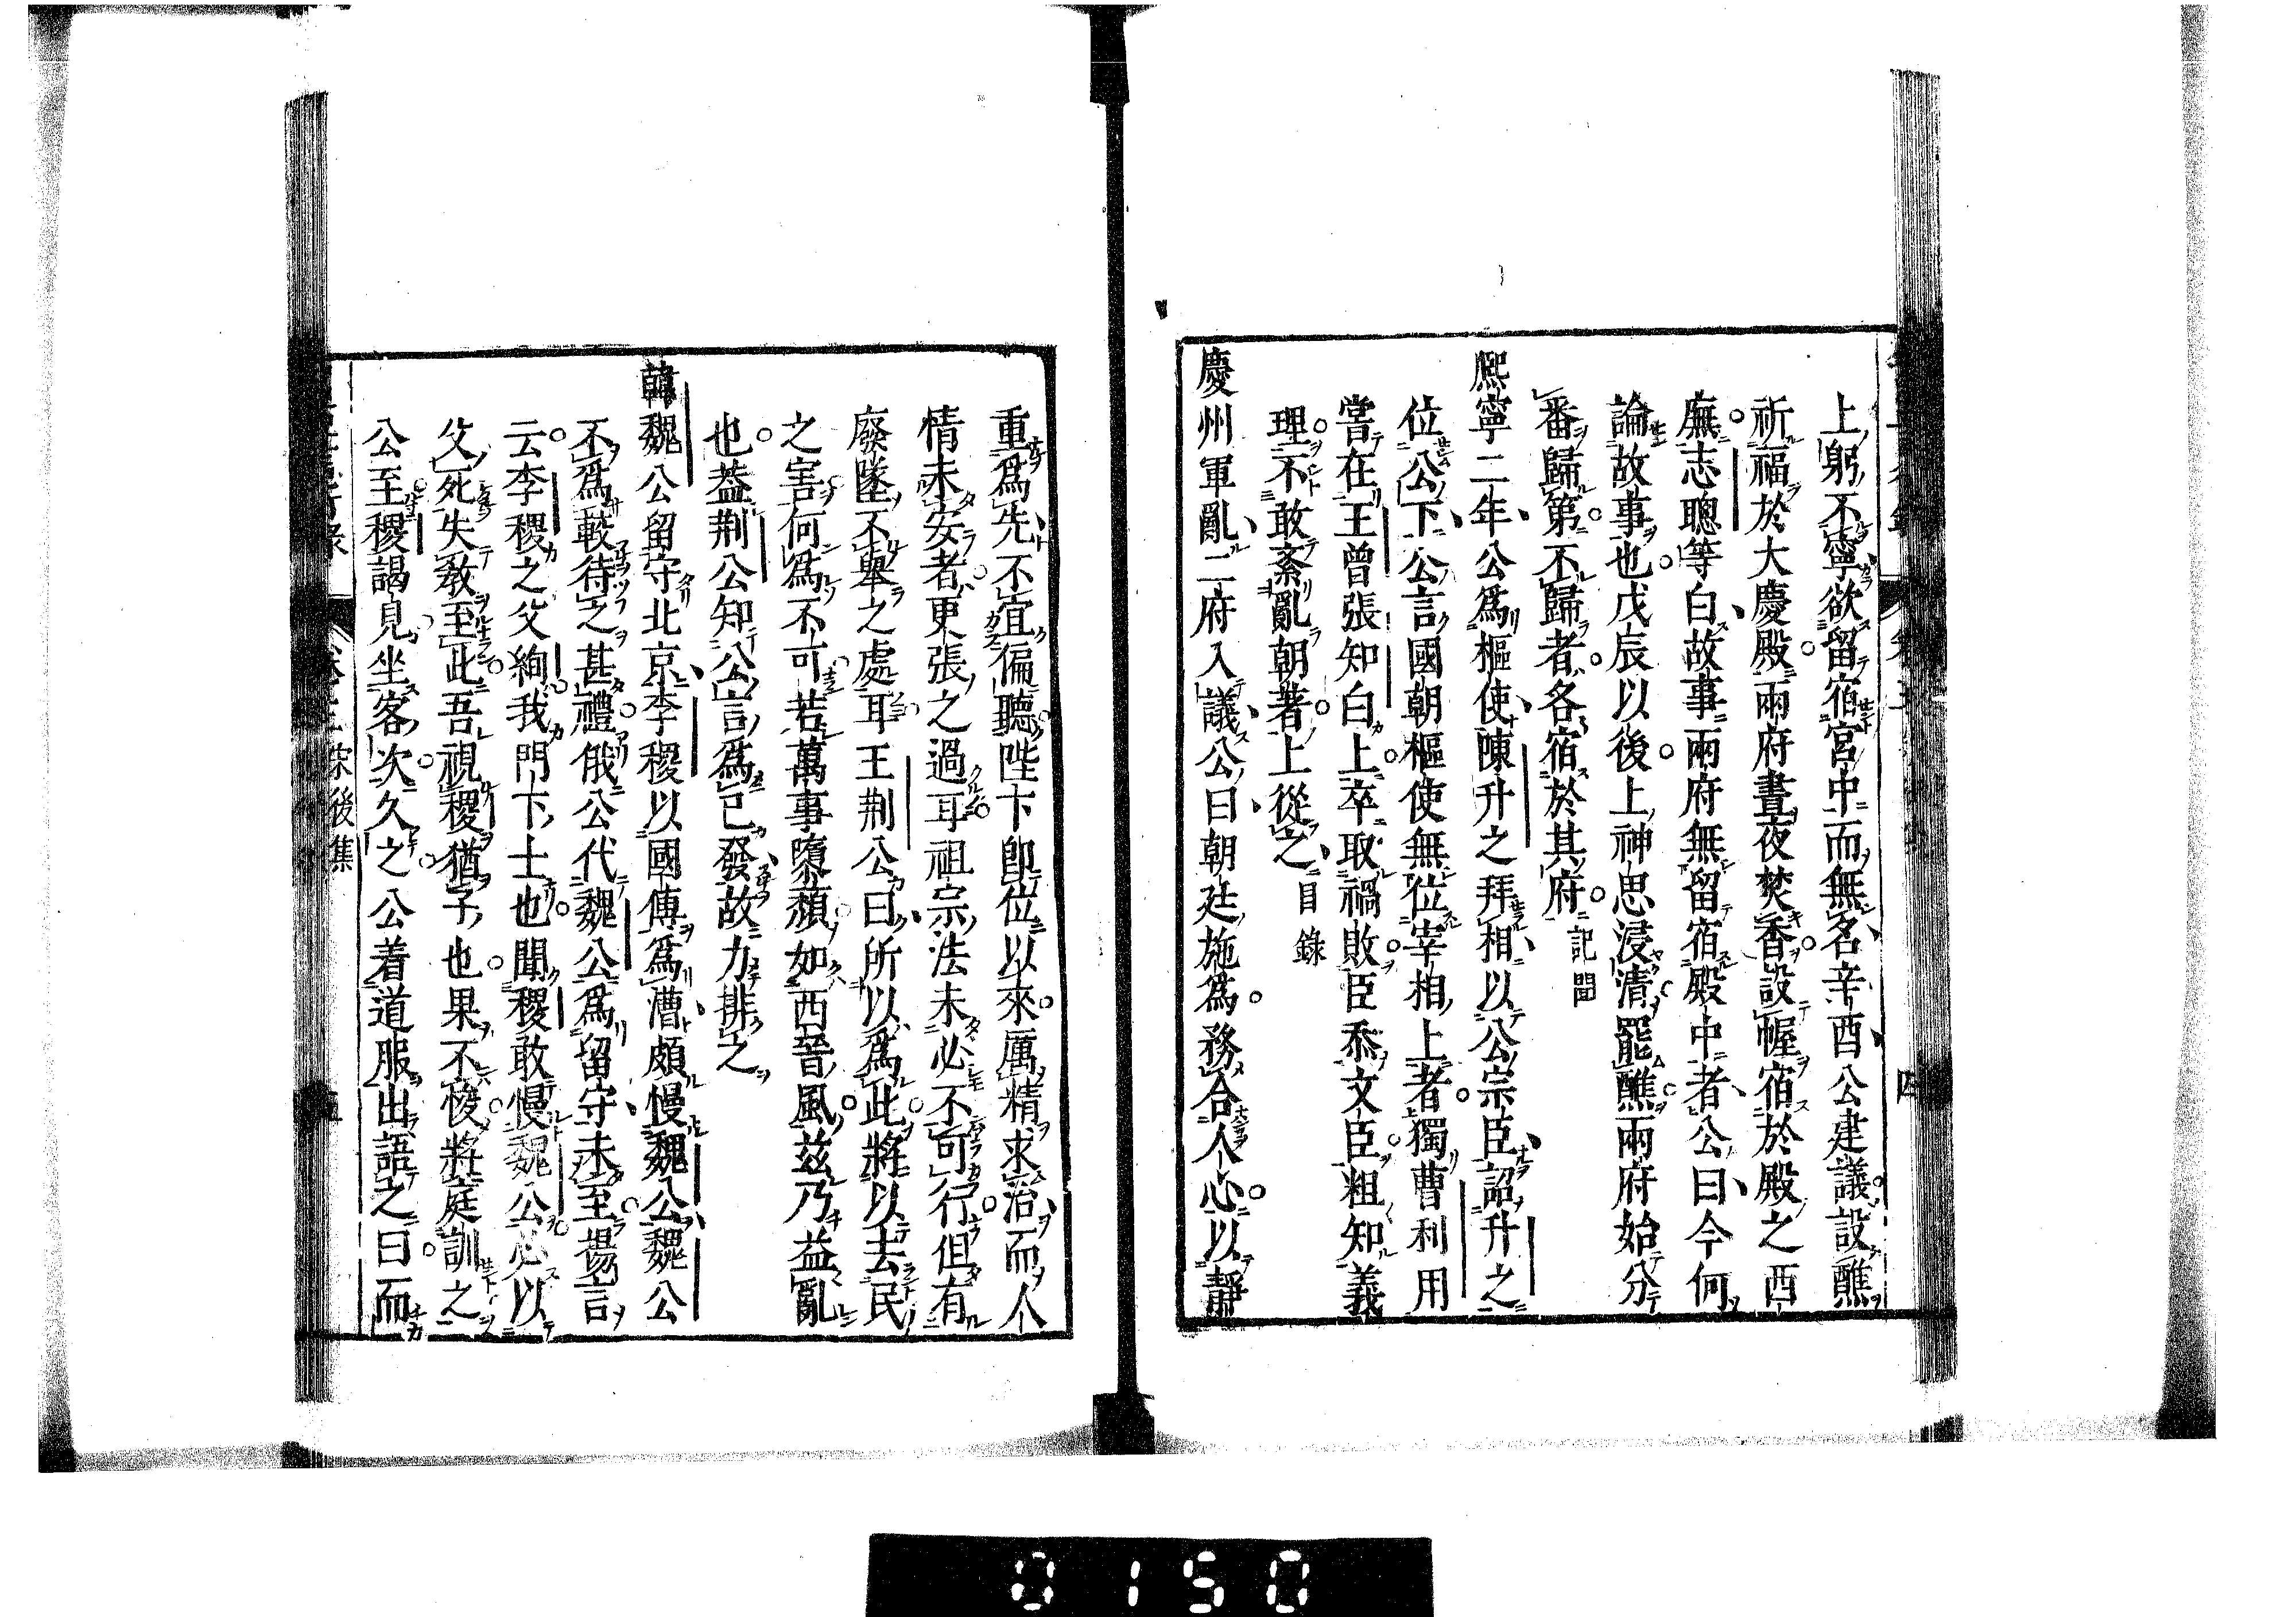 上躬不寧欲留宿宮中而無名辛酉公建議設醮
祈福於大慶殿兩府晝夜焚香設幄宿於殿之西
廡志聰等白故事兩府無留宿殿中者公曰今何
論故事也戊辰以後上神思浸清罷醮兩府始分
番歸第不歸者各宿於其府 記聞
熙寧二年公為樞使陳升之拜相以公宗臣詔升之
位公下公言國朝樞使無位宰相上者獨曹利用
嘗在王曾張知白上卒取禍敗臣忝文臣粗知義
理不敢紊亂朝著上從之 目錄
慶州軍亂二府入議公曰朝廷施為務合人心以靜
重為先不宜偏聽陛下即位以來厲精求治而人
情未安者更張之過耳祖宗法未必不可行但有
廢墜不舉之處耳王荊公曰所以為此將以去民
之害何為不可若萬事隳頹如西晉風茲乃益亂
也蓋荊公知公言為已發故力排之
韓魏公留守北京李稷以國傳為漕頗慢魏公魏公
不為較待之甚禮俄公代魏公為留守未至揚言
云李稷之父絢我門下士也聞稷敢慢魏公必以
父死失教至此吾視稷猶子也果不悛將庭訓之
公至稷謁見坐客次久之公着道服出語之曰而
後集
0150